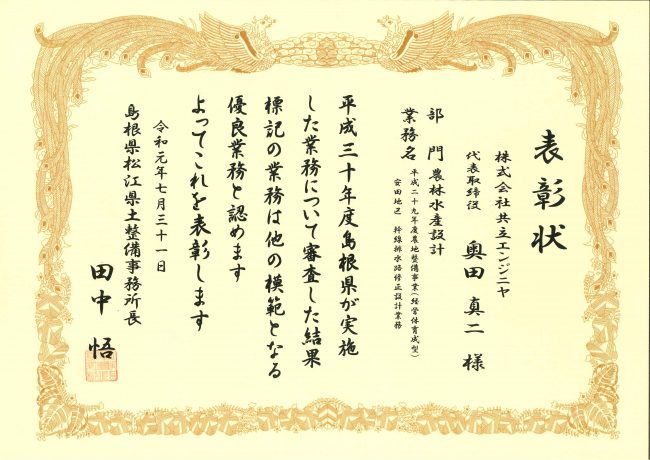 表彰状
株式会社共立エンジニヤ
代表取締役 奥田真二 様
部 門 農林水産設計
業務名 平成二十九年度農地整備事業(経営体育成型)
安田地区 幹線排水路修正設計業務
平成三十年度島根県が実施
した業務について審査した結果
標記の業務は他の模範となる
優良業務と認めます
よってこれを表彰します
令和元年七月三十一日
島根県松江県土整備事務所長
田中 悟